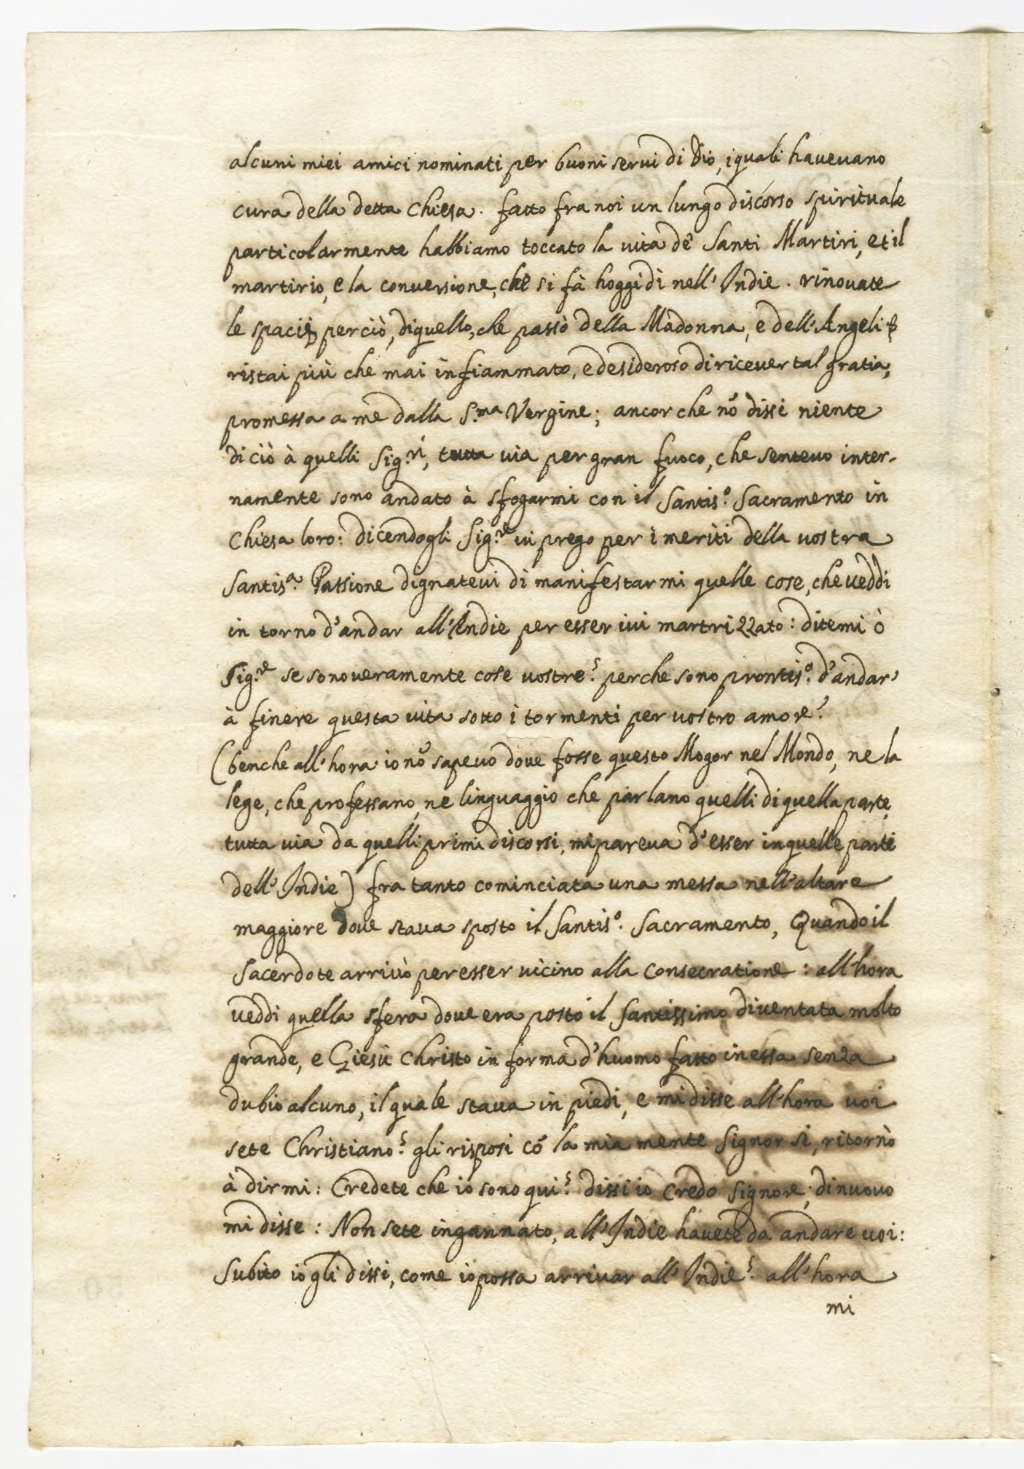 alcuni miei amici nominati per buoni servi di Dio, i quali havevano
cura della detta Chiesa. fatto fra noi un lungo discorso spirituale
particolarmente habbiamo toccato la vita de' Santi Martiri, et il
martirio, e la conversione, che si fà hoggidì nell'Indie. rinovate
le specie perciò, di quello, che passò della Madonna, e dell'Angeli
ristai più che mai infiammato, e desideroso di ricever tal gratia,
promessa a me dalla S.ma Vergine; ancor che nõ dissi niente
di ciò à quelli Sig.ri, tutta via per gran fuoco, che sentevo inter-
namente sono andato à sfogarmi con il Santis.o Sacramento in
Chiesa loro: dicendogli Sig.re vi prego per i meriti della vostra
Santis.a Passione dignatevi di manifestarmi quelle cose, che veddi
in torno d'andar all'Indie per esser ivi martrizzato: ditemi ò
Sig.re se sono veramente cose vostre? perche sono prontis.o d'andar'
à finere questa vita sotto i tormenti per vostro amore?
(benche all'hora io nõ sapevo dove fosse questo Mogor nel Mondo, ne la
lege, che professano, ne linguaggio che parlano quelli di quella parte,
tutta via da quelli primi discorsi, mi pareva d'esser in quelle parti
dell'Indie) fra tanto cominciata una messa nell'altare
maggiore dove stava sposto il Santis.o Sacramento, Quando il
Sacerdote arrivò per esser vicino alla Consecratione: all'hora
veddi quella sfera dove era posto il Santissimo diventata molto
grande, e Giesù Christo in forma d'huomo fatto in essa senza
dubio alcuno, il quale stava in piedi, e mi disse all'hora voi
sete Christiano? gli risposi cõ la mia mente Signor si, ritornò
à dirmi: Credete che io sono qui? dissi io Credo Signore, di nuovo
mi disse: Non sete ingannato, all'Indie havete da andare voi:
Subito io gli dissi, come io possa arrivar all'Indie? all'hora
mi